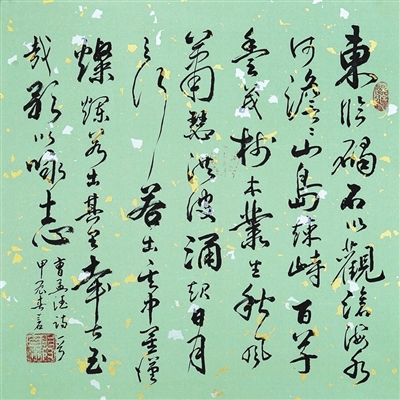 東临碣石以觀滄海水
何澹々山島竦峙百草
豐茂樹木叢生秋風
蕭瑟洪波涌起日月
之行若出其中星漢
燦爛若出其里幸甚至
哉歌以咏志
曹孟德詩一首
甲辰春